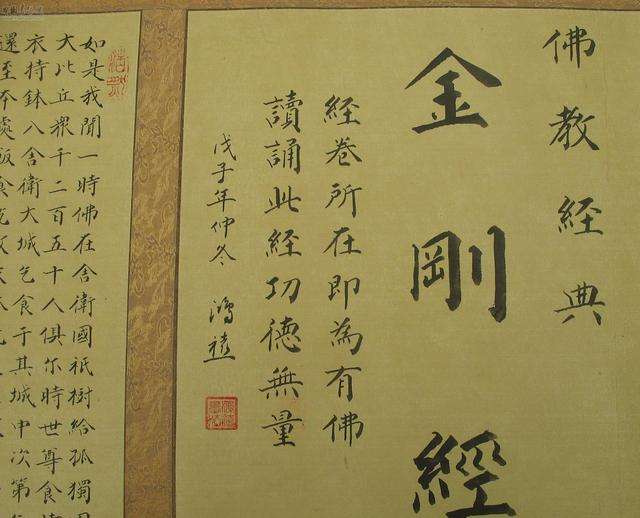 佛教經典
金剛經
經卷所在即為有佛
讀誦此經功德無量
戊子年仲冬 鴻禧
如是我聞一時佛在舍衛國祇樹給孤獨
大比丘眾千二百五十人俱尒時世尊食
衣持鉢入舍衛大城乞食于其城中次第
還至本處飯食訖收衣